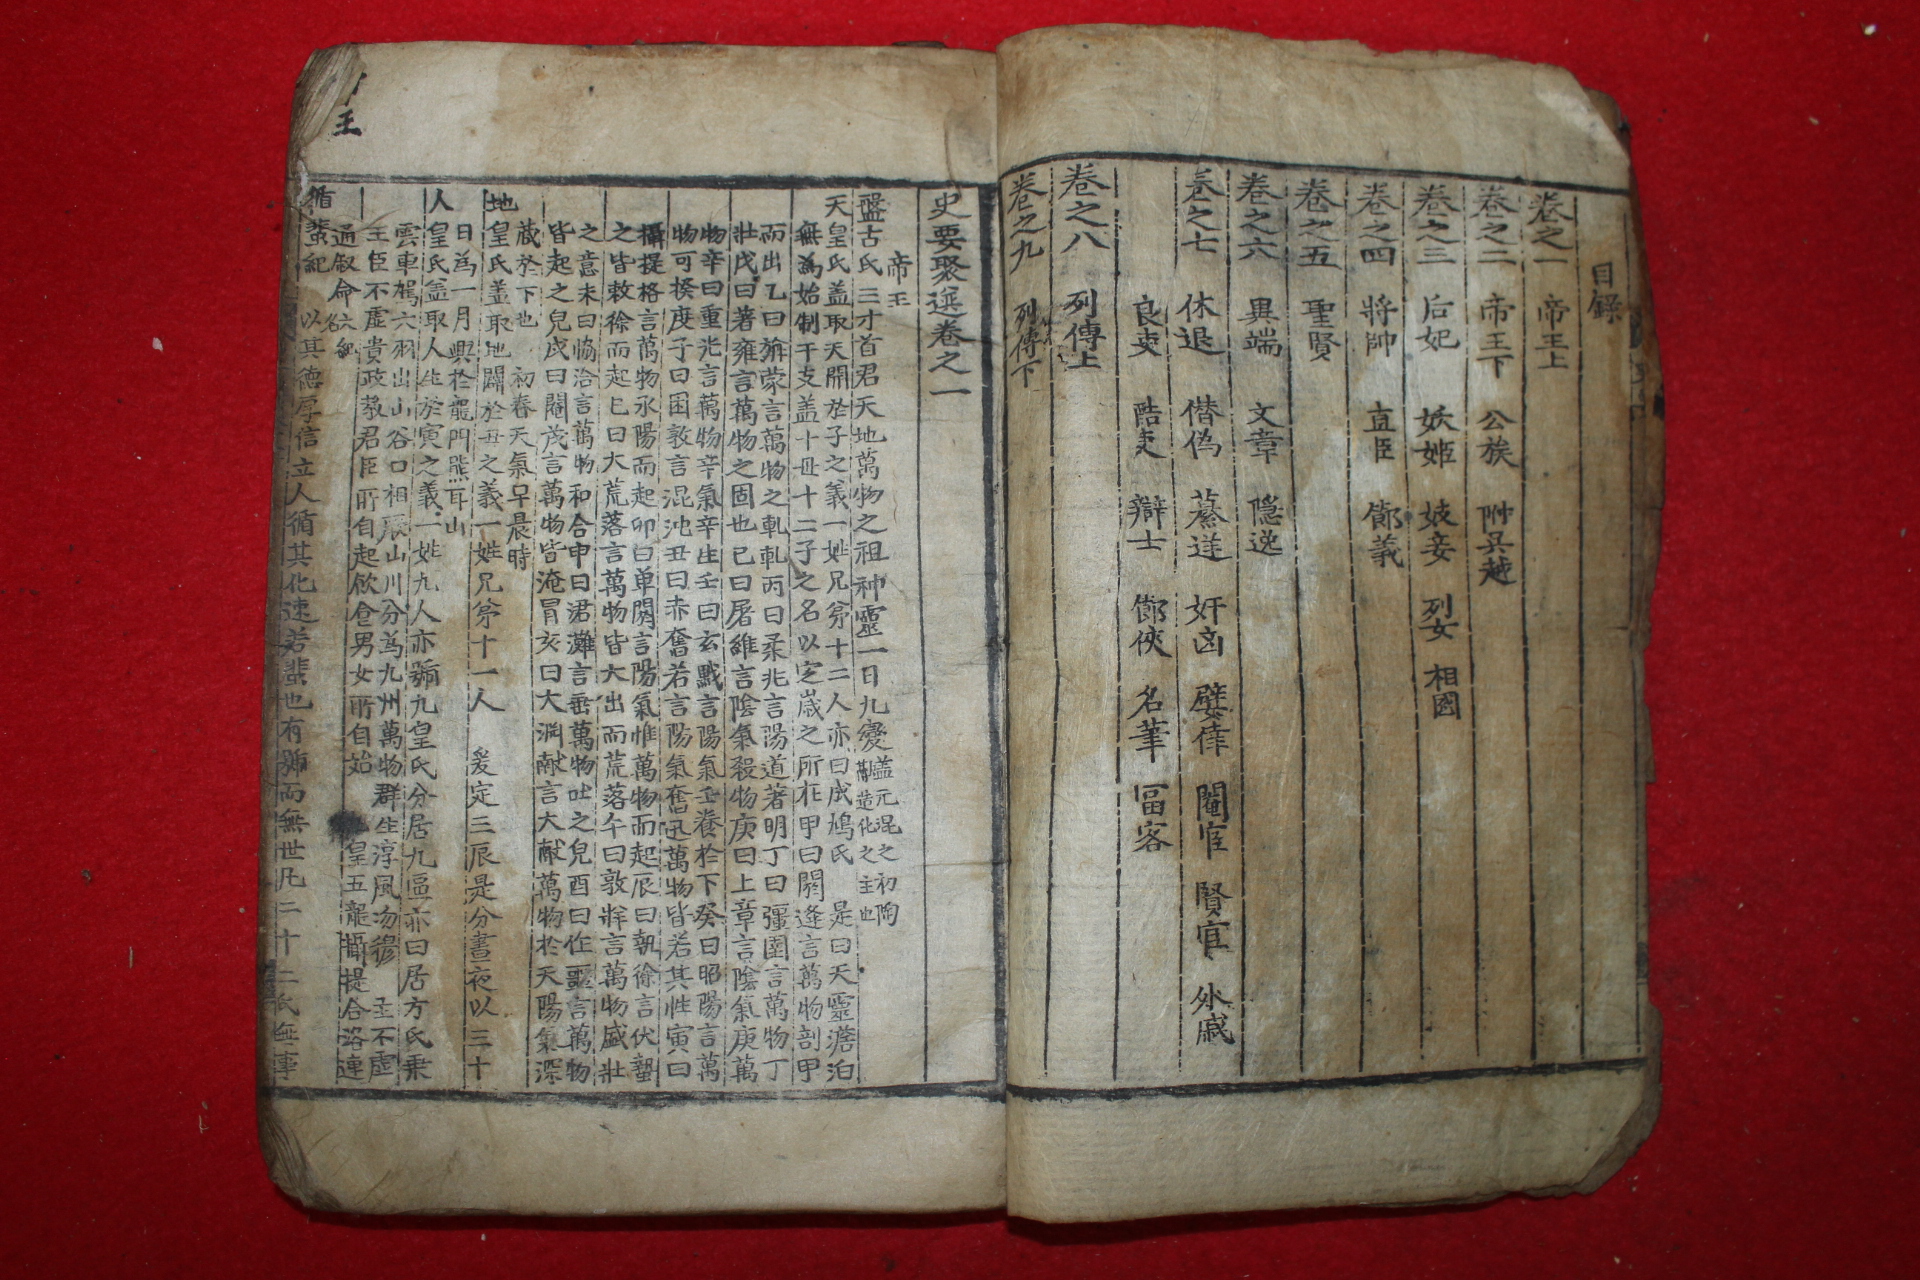 目錄
卷之一 帝王上
卷之二 帝王下 公族 附吳越
卷之三 后妃 妖姬 妓妾 列女 相國
卷之四 將帥 直臣 節義
卷之五 聖賢
卷之六 異端 文章 隱逸
卷之七 休退 僭偽 簒逆 奸凶 嬖倖 閹宦 賢宦 外戚
良吏 酷吏 辯士 節俠 名筆 富客
卷之八 列傳上
卷之九 列傳下
史要聚選卷之一
帝王
盤古氏 三才首君天地萬物之祖神靈一日九變 蓋元混之初陶
甄造化之主也
天皇氏 蓋取天開於子之義一姓兄弟十二人亦曰成鳩氏 是曰天靈澹泊
無爲始制干支蓋十母十二子之名以定歲之所在甲曰閼逢言萬物剖甲
而出乙曰旃蒙言萬物之軋軋丙曰柔兆言陽道著明丁曰彊圉言萬物丁
壯戊曰著雍言萬物之固也己曰屠維言陰氣殺物庚曰上章言陰氣庚萬
物辛曰重光言萬物辛氣辛生壬曰玄黓言陽氣壬養於下癸曰昭陽言萬
物可揆度子曰困敦言混沌丑曰赤奮若言陽氣奮迅萬物皆若其性寅曰
攝提格言萬物承陽而起卯曰单閼言陽氣惟萬物而起辰曰執徐言伏蟄
之皆敕徐而起巳曰大荒落言萬物皆大出而荒落午曰敦牂言萬物盛壯
之意未曰協洽言萬物和合申曰涒灘言垂萬物吐之兒酉曰作噩言萬物
皆起之兒戌曰閹茂言萬物皆淹冒亥曰大淵献言大献萬物於天陽氣深
藏於下也 初春天氣早晨時
地皇氏 蓋取地闢於丑之義一姓兄弟十一人 爰定三辰是分晝夜以三十
日爲一月興於龍門熊耳山
人皇氏 蓋取人生於寅之義一姓九人亦號九皇氏分居九區亦曰居方氏乗
雲車駕六羽出山谷口相厥山川分爲九州萬物群生淳風沕穆 主不虛
王臣不虛貴政敎君臣所自起飮食男女所自始 皇五龍攝提合洛連
通叙命六紀
循蜚紀 以其德厚信立人循其化速若蜚也有號而無世凡二十二氏無事